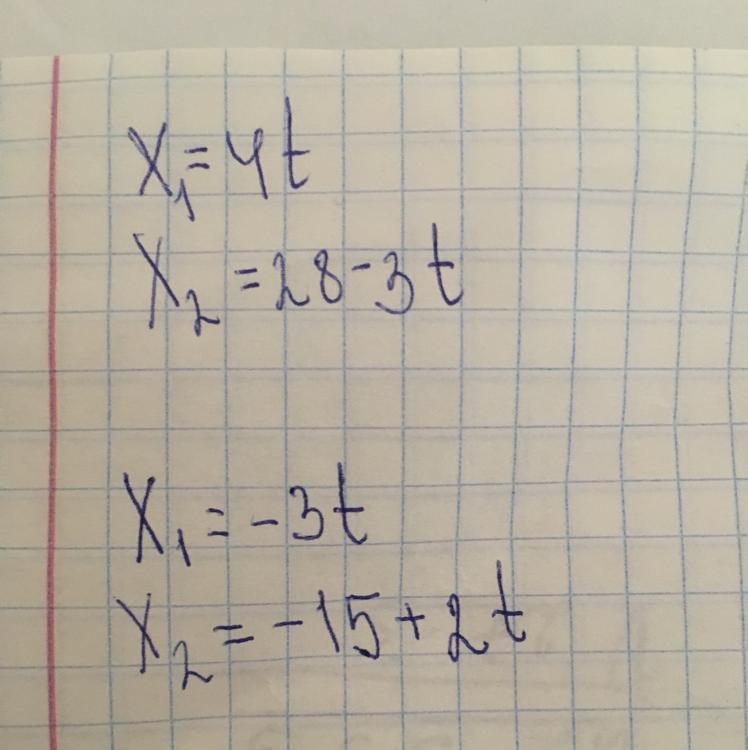 X₁=4t
X₂=28-3t
X₁=-3t
X₂=-15+2t